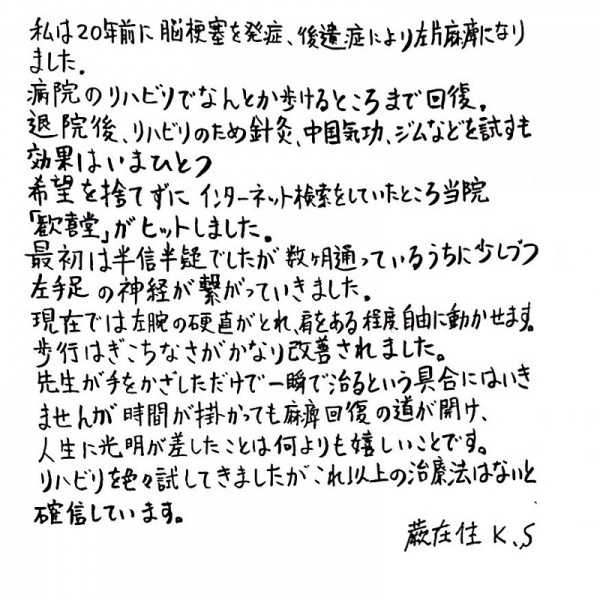 私は20年前に脳梗塞を発症、後遺症により左片麻痺になり
ました。
病院のリハビリでなんとか歩けるところまで回復。
退院後、リハビリのため針灸、中国気功、ジムなどを試すも
効果はいまひとつ
希望を捨てずにインターネット検索をしていたところ当院
「歓喜堂」がヒットしました。
最初は半信半疑でしたが数ヶ月通っているうちに少しづつ
左手足の神経が繋がっていきました。
現在では左腕の硬直がとれ、肩をある程度自由に動かせます。
歩行はぎこちなさがかなり改善されました。
先生が手をかざしただけで一瞬で治るという具合にはいき
ませんが時間が掛かっても麻痺回復の道が開け、
人生に光明が差したことは何よりも嬉しいことです。
リハビリを色々試してきましたがこれ以上の治療法はないと
確信しています。
蕨在住 K.S